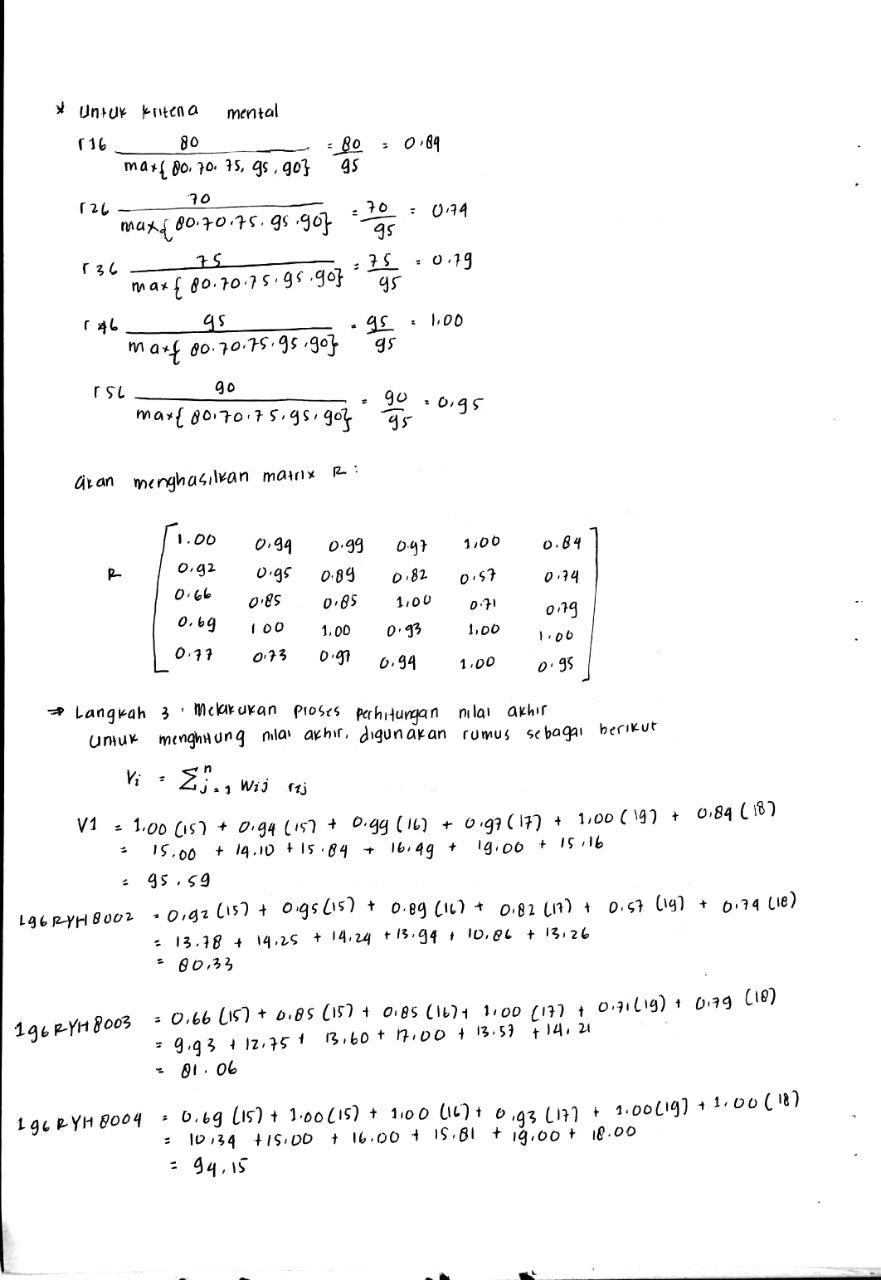 * Untuk kriteria mental
r16 80 / max{80, 70, 75, 95, 90} = 80/95 = 0.84
r26 70 / max{80.70.75.95.90} = 70/95 = 0,74
r36 75 / max{80.70.75.95.90} = 75/95 = 0.79
r46 95 / max{80.70.75.95.90} = 95/95 = 1.00
r56 90 / max{80.70.75.95.90} = 90/95 = 0,95
akan menghasilkan matrix R :
1.00 0,94 0.99 0.97 1,00 0.84
R 0.92 0.95 0.89 0.82 0.57 0.74
0.66 0.85 0.85 1,00 0.71 0.79
0.69 1 00 1.00 0.93 1.00 1.00
0.77 0.73 0.97 0.94 1.00 0.95
⇒ Langkah 3 : Melakukan proses perhitungan nilai akhir
untuk menghitung nilai akhir, digunakan rumus sebagai berikut
Vi = Σ n j=1 wij rij
V1 = 1.00 (15) + 0.94 (15) + 0.99 (16) + 0.97 (17) + 1,00 (19) + 0,84 (18)
= 15.00 + 14.10 + 15.84 + 16.49 + 19.00 + 15,16
= 95.59
196RYH8002 = 0,92 (15) + 0.95 (15) + 0.89 (16) + 0.82 (17) + 0.57 (19) + 0.74 (18)
= 13.78 + 14.25 + 14.24 + 13.94 + 10.86 + 13,26
= 80,33
196RYH8003 = 0.66 (15) + 0.85 (15) + 0.85 (16) + 1.00 (17) + 0.71 (19) + 0.79 (18)
= 9.93 + 12.75 + 13,60 + 17.00 + 13.57 + 14.21
= 81.06
196RYH8004 = 0.69 (15) + 1.00 (15) + 1.00 (16) + 0.93 (17) + 1.00 (19) + 1.00 (18)
= 10,34 + 15.00 + 16.00 + 15.81 + 19.00 + 18.00
= 94,15